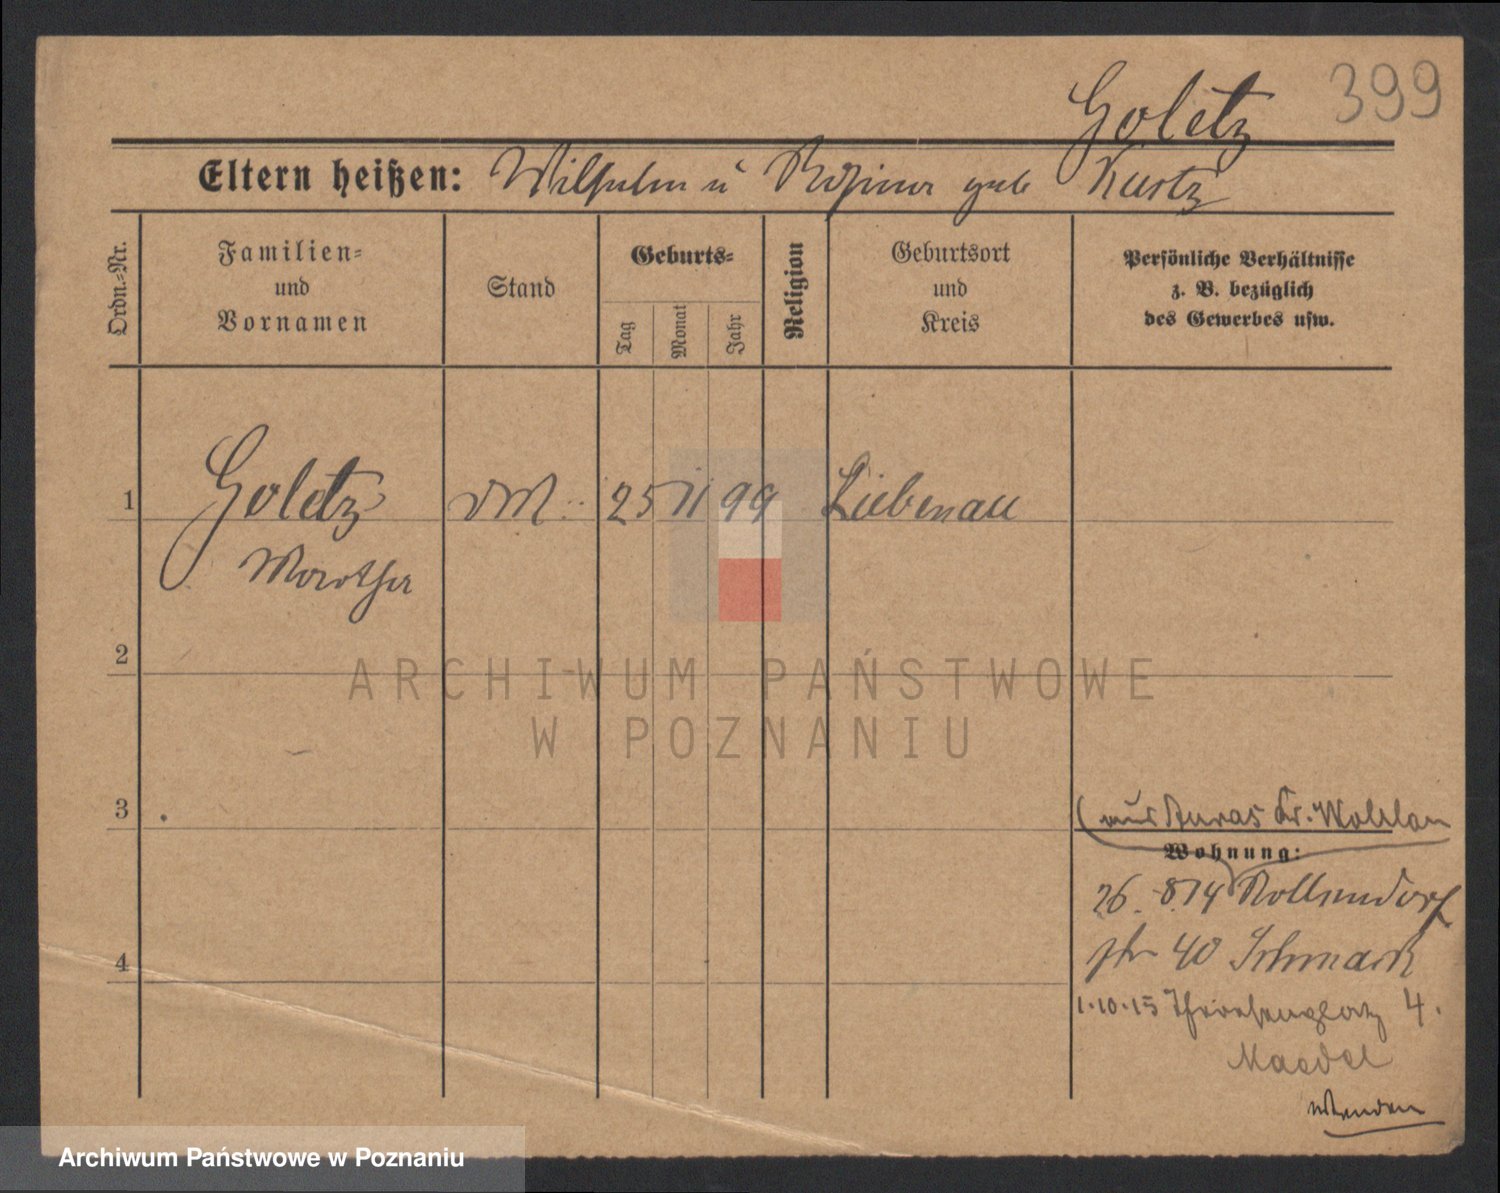 399
Goletz
Eltern heißen: Wilhelm u Rosina geb Kurtz
Ordn.-Nr.
Familien-
und
Vornamen
Stand
Geburts-
Tag
Monat
Jahr
Religion
Geburtsort
und
Kreis
Persönliche Verhältnisse
z. B. bezüglich
des Gewerbes usw.
1
Goletz
25 11 99 Liebenau
2
ARCHIWUM PAŃSTWOWE
W POZNANIU
3
(aus Auras Kr. Wohlau
Wohnung:
26. 8 14
str 40
4
1.10.15 4.
Maedel
wenden
Archiwum Państwowe w Poznaniu